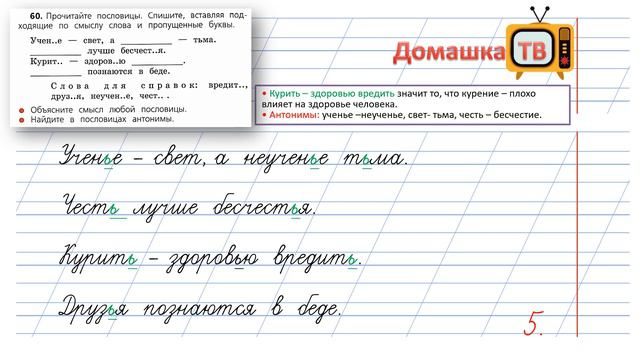 60. Прочитайте пословицы. Спишите, вставляя под-
ходящие по смыслу слова и пропущенные буквы.
Учен..е — свет, а ________ — тьма.
________ лучше бесчест..я.
Курит.. — здоров..ю ________.
________ познаются в беде.
Слова для справок: вредит..,
друз..я, неучен..е, чест.. .
● Объясните смысл любой пословицы.
● Найдите в пословицах антонимы.
Домашка ТВ
• Курить – здоровью вредить значит то, что курение – плохо
влияет на здоровье человека.
• Антонимы: ученье –неученье, свет- тьма, честь – бесчестие.
Ученье – свет, а неученье тьма.
Честь лучше бесчестья.
Курить – здоровью вредить.
Друзья познаются в беде.
5.